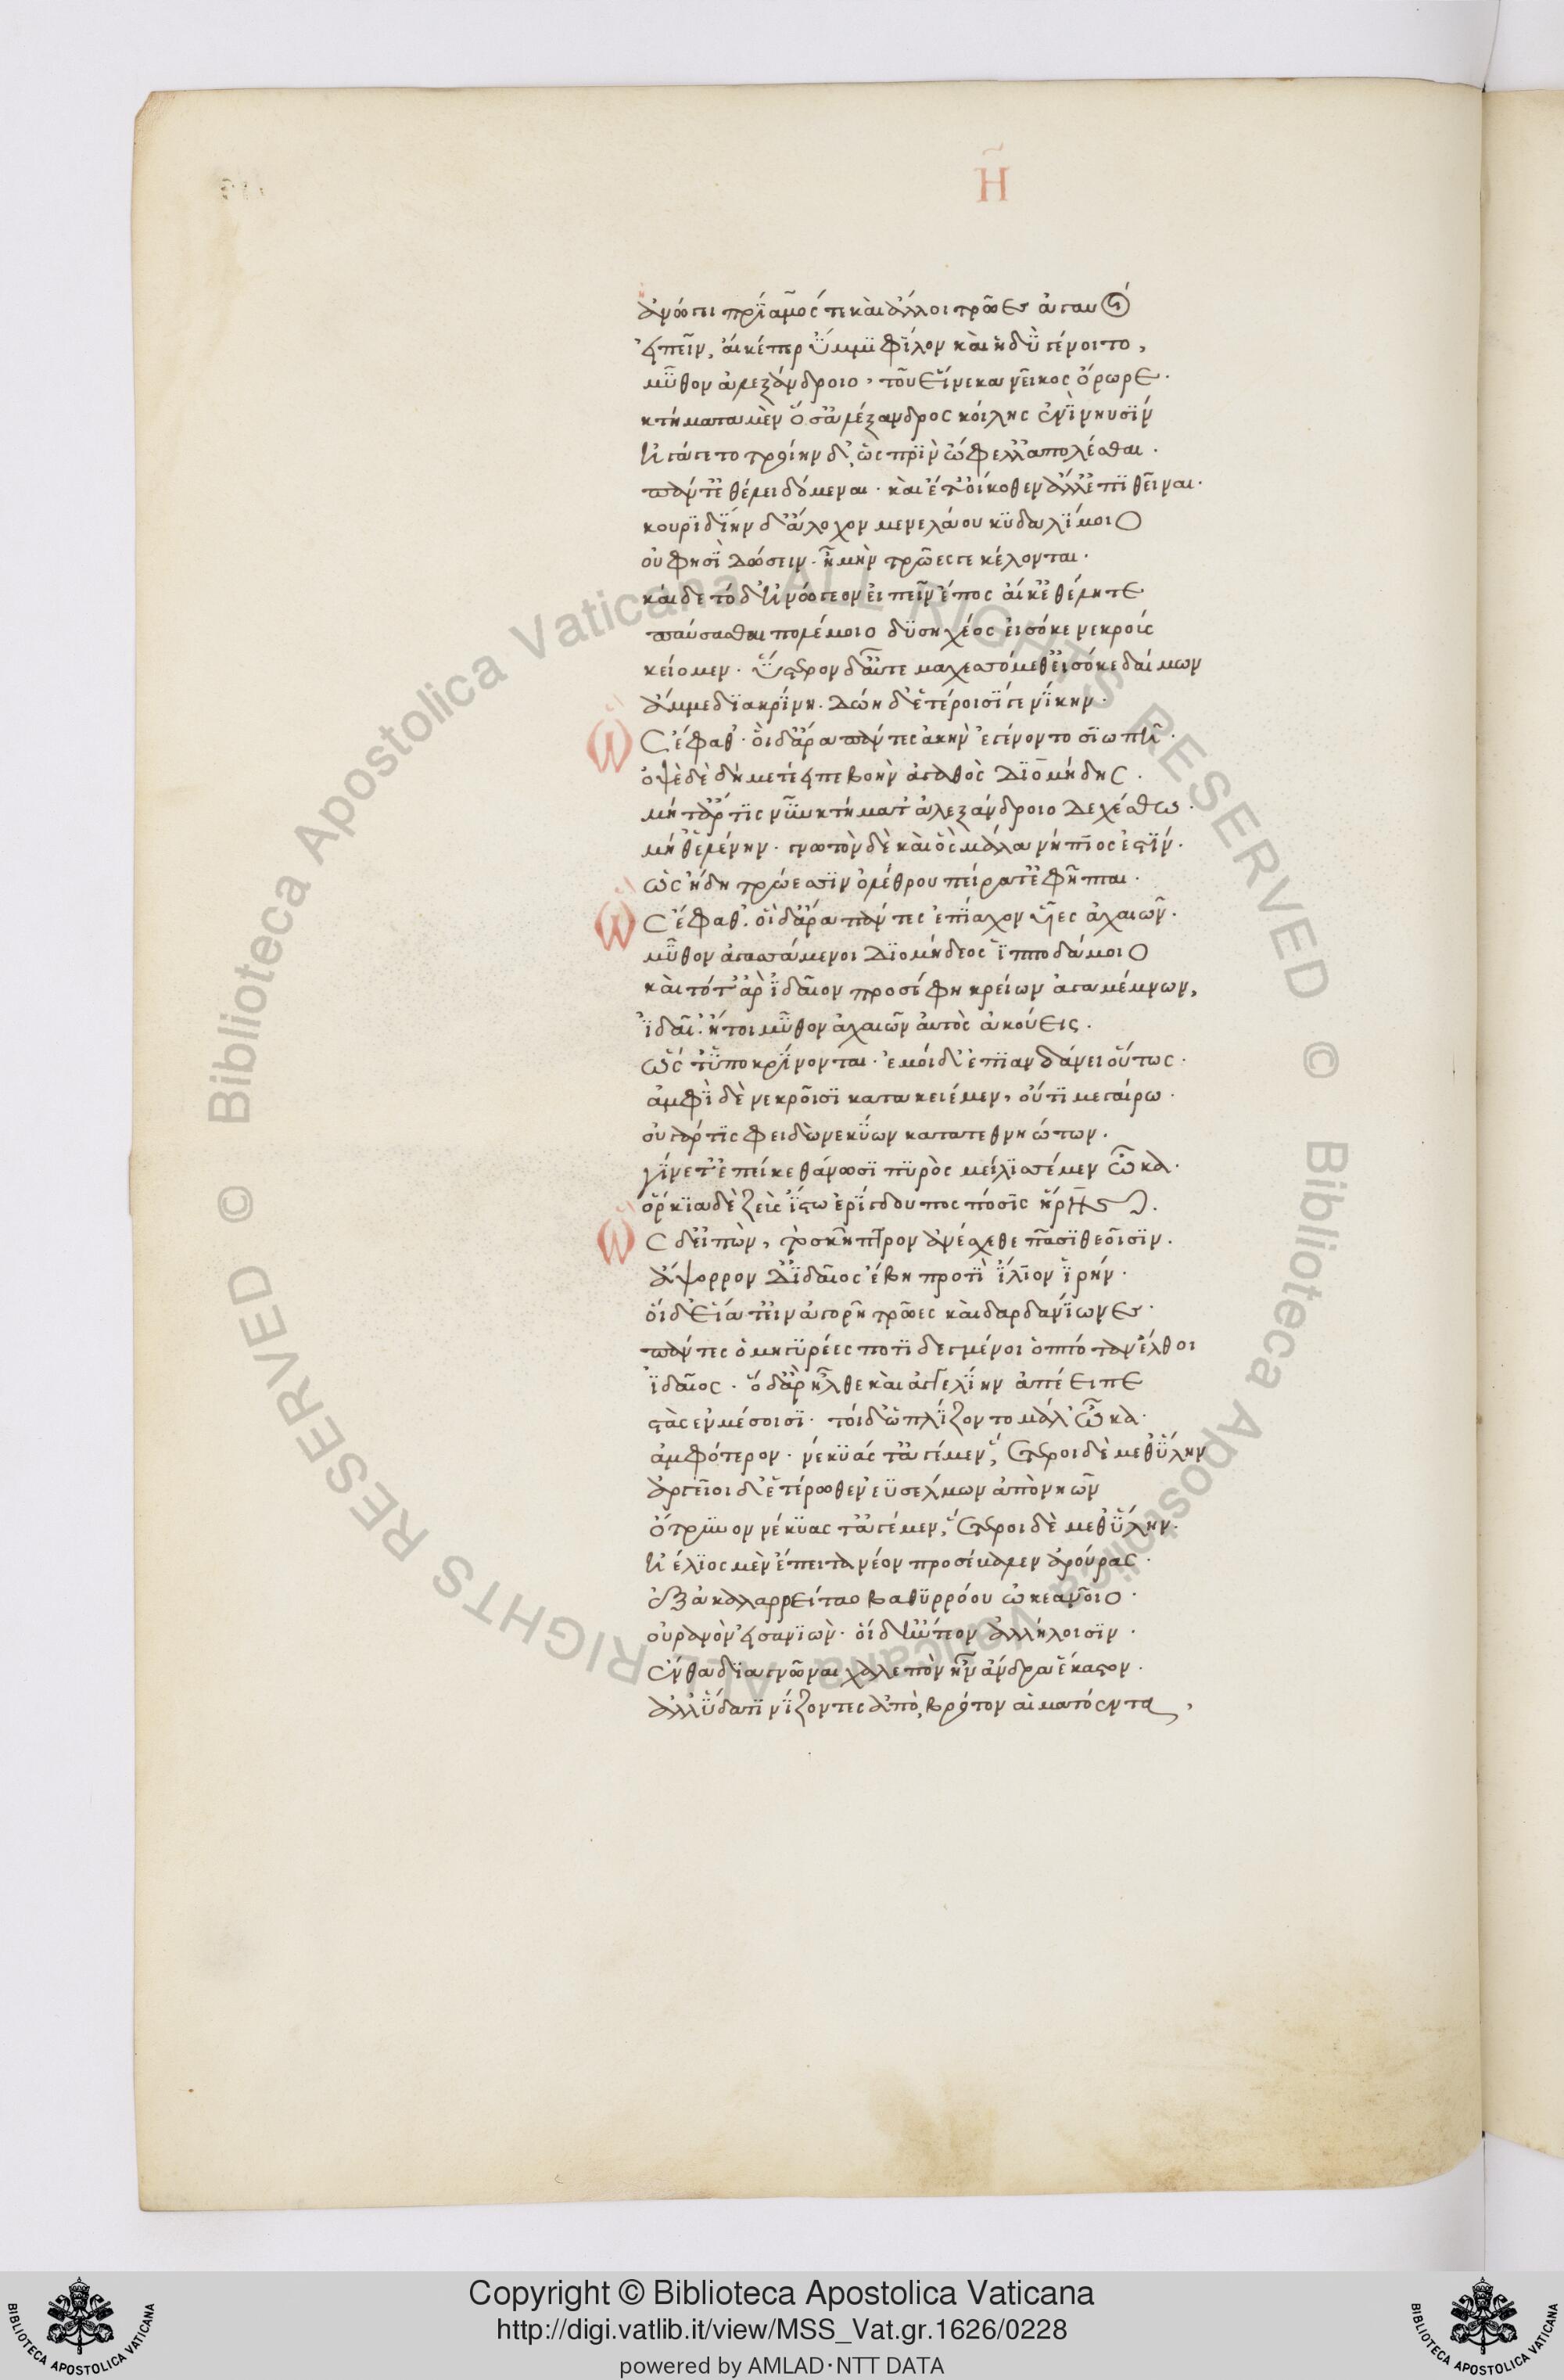 Η̃
ἠνώγει πρΐαμός τε καὶ ἄλλοι τρῶες ἀγαυοί
εἰπεῖν, αἴ κέ περ ὔμμι φΐλον καὶ ἡδὺ γένοιτο,
μῦθον ἀλεξάνδροιο, τοῦ εἵνεκα νεῖκος ὄρωρε·
κτήματα μὲν ὅσ' ἀλέξανδρος κοίλης ἐνὶ νηυσΐν
ἠγάγετο τροίην δ', ὡς πρὶν ὤφελλ' ἀπολέσθαι·
πάντ' ἐθέλει δόμεναι· καὶ ἔτ' οἴκοθεν ἄλλ' ἐπιθεῖναι·
κουριδΐην δ' ἄλοχον μενελάου κυδαλΐμοιο
οὔ φησϊ δώσειν· ἦ μὴν τρῶές γε κέλονται·
καὶ δὲ τόδ' ἠνώγεον εἰπεῖν ἔπος αἴ κ' ἐθέλητε
παύσασθαι πολέμοιο δυσηχέος εἰσόκε νεκροὺς
κείομεν· ὕστερον δ' αὖτε μαχεσόμεθ' εἰσόκε δαίμων
ἄμμε διακρΐνη· δώη δ' ἑτέροισΐ γε νΐκην·
Ὣς ἔφαθ'· οἱ δ' ἄρα πάντες ἀκὴν ἐγένοντο σιωπῆ·
ὀψὲ δὲ δὴ μετέειπε βοὴν ἀγαθὸς Διομήδης·
μήτ' ἄρ τις νῦν κτήματ' ἀλεξάνδροιο δεχέσθω·
μήθ' ἑλένην· γνωτὸν δὲ καὶ ὃς μάλα νήπιός ἐστΐν·
ὡς ἤδη τρώεσσϊν ὀλέθρου πείρατ' ἐφῆπται·
Ὣς ἔφαθ'· οἱ δ' ἄρα πάντες ἐπΐαχον υἷες ἀχαιῶν·
μῦθον ἀγασσάμενοι Διομήδεος ἱπποδάμοιο
καὶ τότ' ἄρ' ϊδαῖον προσέφη κρείων ἀγαμέμνων,
ϊδαῖ' ἤτοι μῦθον ἀχαιῶν αὐτὸς ἀκούεις·
ὥς τ' ὑποκρΐνονται· ἐμοὶ δ' ἐπιανδάνει οὕτως·
ἀμφὶ δὲ νεκροῖσϊ κατακειέμεν, οὔτι μεγαίρω·
οὐ γάρ τις φειδὼ νεκΰων κατατεθνηώτων·
γΐνετ' ἐπεί κε θάνωσϊ πυρὸς μειλϊσσέμεν ὦκα·
ὅρκια δὲ ζεὺς ἴστω ἐρΐγδουπος πόσις ἥρης·
Ὣς εἰπὼν, τὸ σκῆπτρον ἀνέσχεθε πᾶσϊ θεοῖσϊν·
ἄψορρον δ' ϊδαῖος ἔβη προτὶ ΐλιον ϊρήν·
οἱ δ' εἵατ' εἰν ἀγορῆ τρῶες καὶ δαρδανΐωνες·
πάντες ὁμηγυρέες ποτϊδεγμένοι ὁππότ' ἂν ἔλθοι
ϊδαῖος· ὁ δ' ἄρ' ἦλθε καὶ ἀγγελΐην ἀπέειπε
στὰς ἐν μέσοισϊ· τοὶ δ' ὡπλΐζοντο μάλ' ὦκα·
ἀμφότερον· νέκυάς τ' ἀγέμεν, ἕτεροι δὲ μεθ' ὕλην
ἀργεῖοι δ' ἑτέρωθεν ἐϋσέλμων ἀπὸ νηῶν
ὄτρυνον νέκυας τ' ἀγέμεν, ἕτεροι δὲ μεθ' ὕλην·
ἠέλϊος μὲν ἔπειτα νέον προσέβαλεν ἀρούρας·
ἐξ ἀκαλαρρείταο βαθυρρόου ὠκεανοῖο·
οὐρανὸν εἰσανϊών· οἱ δ' ἤντεον ἀλλήλοισϊν·
ἔνθα διαγνῶναι χαλεπὸν ἦν ἄνδρα ἕκαστον·
ἀλλ' ὕδατϊ νΐζοντες ἄπο βρότον αἱματόεντα,
Copyright © Biblioteca Apostolica Vaticana
http://digi.vatlib.it/view/MSS_Vat.gr.1626/0228
powered by AMLAD·NTT DATA